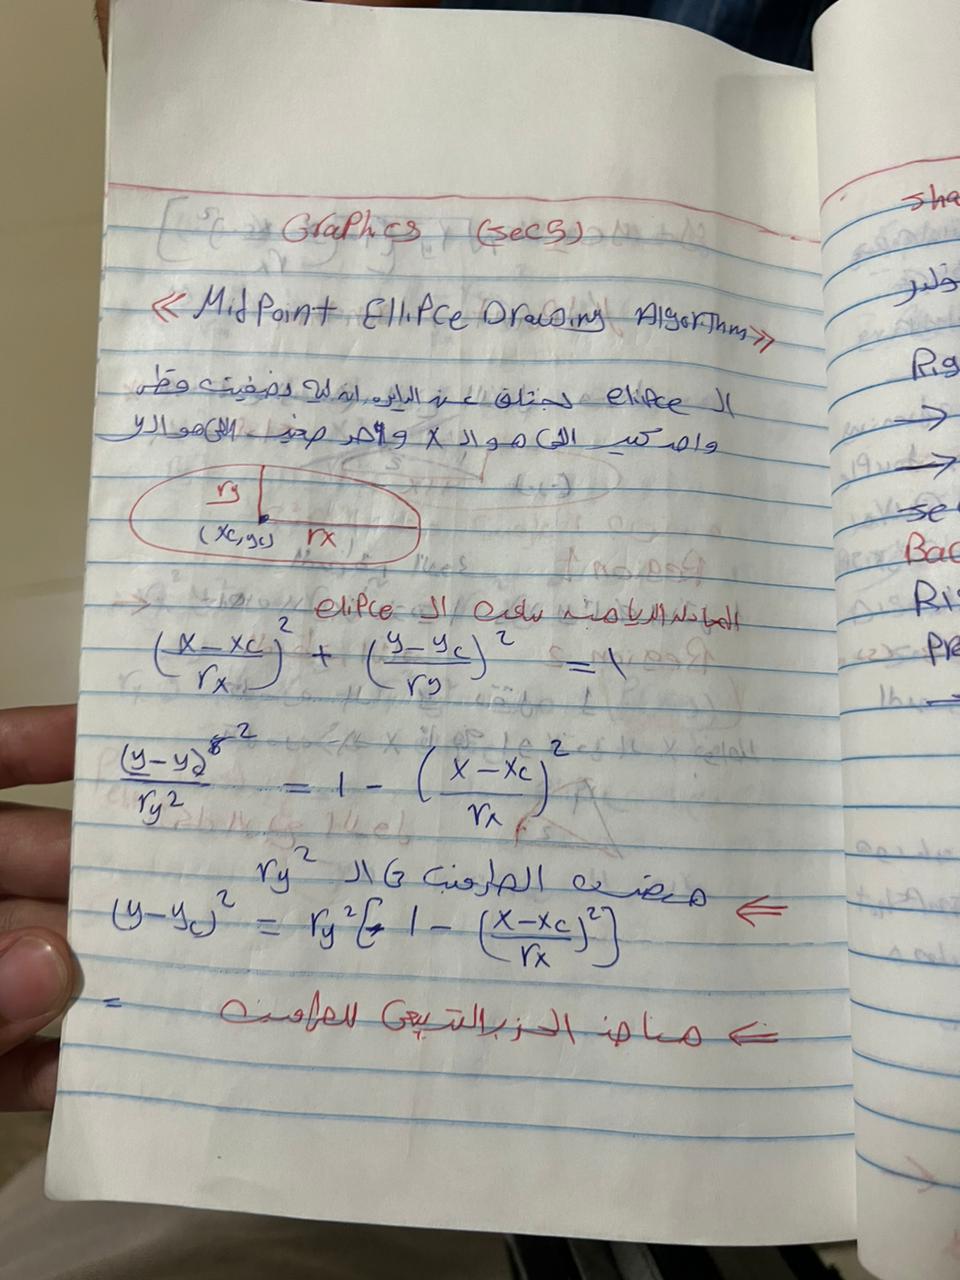 Graphics (sec5)
<< MidPoint Ellipce Drawing Algorithm >>
ال elipce بختلف عن الدايره ان ليه نصفين قطر
واحد كبير اللي هو ال x وواحد صغير اللي هو ال y
ry
(xc,yc) rx
المعادله الرياضيه بتاعت ال elipce
(x-xc/rx)² + (y-yc/ry)² = 1
(y-yc)²/ry² = 1 - (x-xc/rx)²
⇐ هنضرب الطرفين في ال ry²
(y-yc)² = ry² [1 - (x-xc/rx)²]
⇐ هناخد الجزر التربيعي للطرفين
=
sha
Rig
→
→
se
Bac
Ri
Pre
→